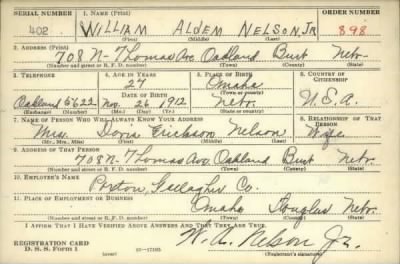 SERIAL NUMBER 1. NAME (Print) ORDER NUMBER
402 WILLIAM ALDEM NELSON, JR 898
(First) (Middle) (Last)
2. ADDRESS (Print)
708 N- Thomas Ave. Oakland Burt Nebr.
(Number and street or R. F. D. number) (Town) (County) (State)
3. TELEPHONE 4. AGE IN YEARS 5. PLACE OF BIRTH 6. COUNTRY OF CITIZENSHIP
27 Omaha
DATE OF BIRTH (Town or county)
Oakland 5622 Nov. 26 1912 Nebr. U.S.A.
(Exchange) (Number) (Mo.) (Day) (Yr.) (State or country)
7. NAME OF PERSON WHO WILL ALWAYS KNOW YOUR ADDRESS 8. RELATIONSHIP OF THAT PERSON
Mrs. Doris Erickson Nelson Wife
(Mr., Mrs., Miss) (First) (Middle) (Last)
9. ADDRESS OF THAT PERSON
708 N- Thomas Ave. Oakland Burt Nebr.
(Number and street or R. F. D. number) (Town) (County) (State)
10. EMPLOYER'S NAME
Paxton, Gallagher Co.
11. PLACE OF EMPLOYMENT OR BUSINESS
Omaha Douglas Nebr.
(Number and street or R. F. D. number) (Town) (County) (State)
I AFFIRM THAT I HAVE VERIFIED ABOVE ANSWERS AND THAT THEY ARE TRUE.
REGISTRATION CARD W. A. Nelson Jr.
D. S. S. Form 1 (Registrant's signature)